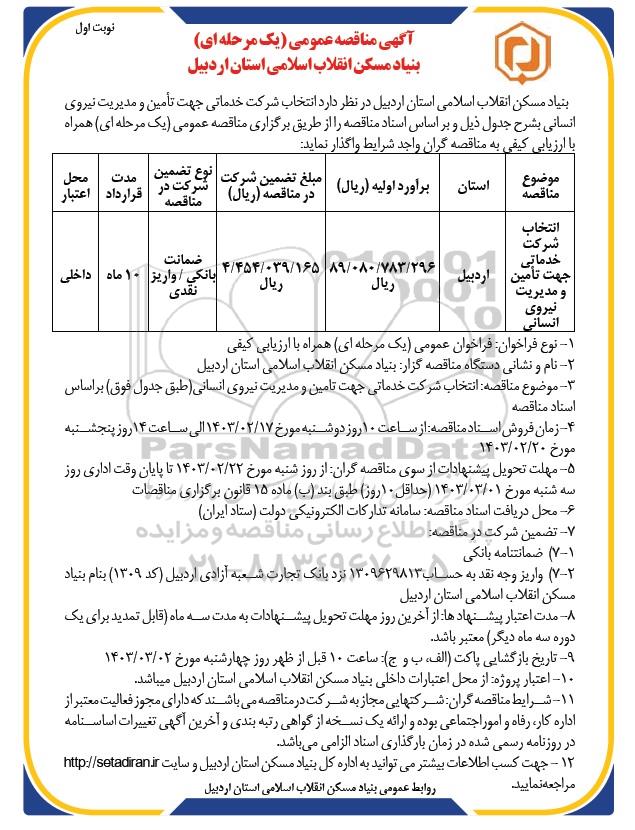 نوبت اول
آگهی مناقصه عمومی (یک مرحله ای)
بنیاد مسکن انقلاب اسلامی استان اردبیل
بنیاد مسکن انقلاب اسلامی استان اردبیل در نظر دارد انتخاب شرکت خدماتی جهت تأمین و مدیریت نیروی
انسانی بشرح جدول ذیل و بر اساس اسناد مناقصه را از طریق برگزاری مناقصه عمومی (یک مرحله ای) همراه
با ارزیابی کیفی به مناقصه گران واجد شرایط واگذار نماید:
موضوع مناقصه | استان | برآورد اولیه (ریال) | مبلغ تضمین شرکت در مناقصه (ریال) | نوع تضمین شرکت در مناقصه | مدت قرارداد | محل اعتبار
انتخاب شرکت خدماتی جهت تأمین و مدیریت نیروی انسانی | اردبیل | ۸۹/۰۸۰/۷۸۳/۲۹۶ ریال | ۴/۴۵۴/۰۳۹/۱۶۵ ریال | ضمانت بانکی / واریز نقدی | ۱۰ ماه | داخلی
۱- نوع فراخوان: فراخوان عمومی (یک مرحله ای) همراه با ارزیابی کیفی
۲- نام و نشانی دستگاه مناقصه گزار: بنیاد مسکن انقلاب اسلامی استان اردبیل
۳- موضوع مناقصه: انتخاب شرکت خدماتی جهت تامین و مدیریت نیروی انسانی(طبق جدول فوق) براساس
اسناد مناقصه
۴-زمان فروش اسناد مناقصه: از ساعت ۱۰ روز دوشنبه مورخ ۱۴۰۳/۰۲/۱۷ الی ساعت ۱۴ روز پنجشنبه
مورخ ۱۴۰۳/۰۲/۲۰
۵- مهلت تحویل پیشنهادات از سوی مناقصه گران: از روز شنبه مورخ ۱۴۰۳/۰۲/۲۲ تا پایان وقت اداری روز
سه شنبه مورخ ۱۴۰۳/۰۳/۰۱ (حداقل ۱۰ روز) طبق بند (ب) ماده ۱۵ قانون برگزاری مناقصات
۶- محل دریافت اسناد مناقصه: سامانه تدارکات الکترونیکی دولت (ستاد ایران)
۷- تضمین شرکت در مناقصه:
۷-۱) ضمانتنامه بانکی
۷-۲) واریز وجه نقد به حساب ۱۳۰۹۶۲۹۸۱۳ نزد بانک تجارت شعبه آزادی اردبیل (کد ۱۳۰۹) بنام بنیاد
مسکن انقلاب اسلامی استان اردبیل
۸- مدت اعتبار پیشنهادها: از آخرین روز مهلت تحویل پیشنهادات به مدت سه ماه (قابل تمدید برای یک
دوره سه ماه دیگر) معتبر باشد.
۹- تاریخ بازگشایی پاکت (الف، ب و ج): ساعت ۱۰ قبل از ظهر روز چهارشنبه مورخ ۱۴۰۳/۰۳/۰۲
۱۰- اعتبار پروژه: از محل اعتبارات داخلی بنیاد مسکن انقلاب اسلامی استان اردبیل میباشد.
۱۱- شرایط مناقصه گران: شرکتهایی مجاز به شرکت در مناقصه می باشند که دارای مجوز فعالیت معتبر از
اداره کار، رفاه و امور اجتماعی بوده و ارائه یک نسخه از گواهی رتبه بندی و آخرین آگهی تغییرات اساسنامه
در روزنامه رسمی شده در زمان بارگذاری اسناد الزامی می‌باشد.
۱۲- جهت کسب اطلاعات بیشتر می توانید به اداره کل بنیاد مسکن استان اردبیل و سایت http://setadiran.ir
مراجعه نمایید.
روابط عمومی بنیاد مسکن انقلاب اسلامی استان اردبیل
ParsNamadData
پایگاه اطلاع رسانی مناقصه و مزایده
۰۲۱-۸۸۳۴۹۶۷۰-۵